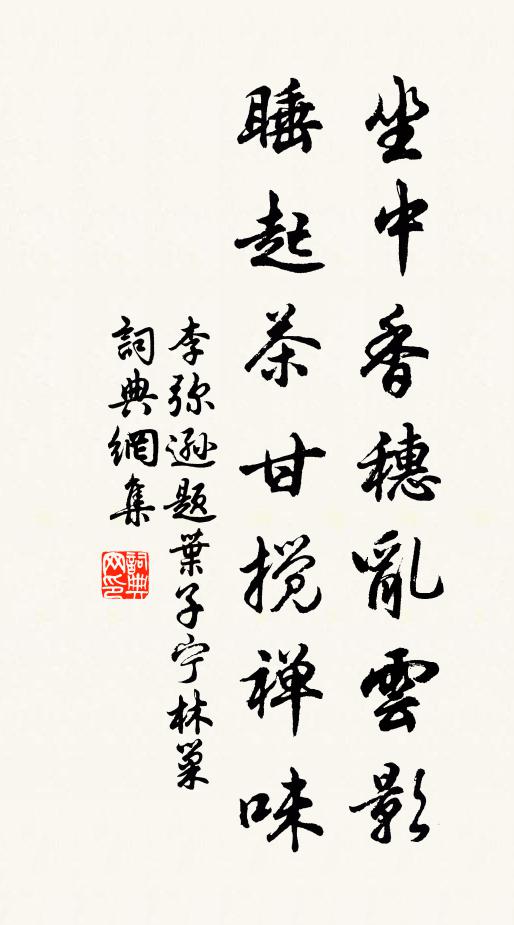 坐中香穗亂雲影
睡起茶甘搅禅味
李弥逊题葉子宁林巢
詞典網集
詞典
网印